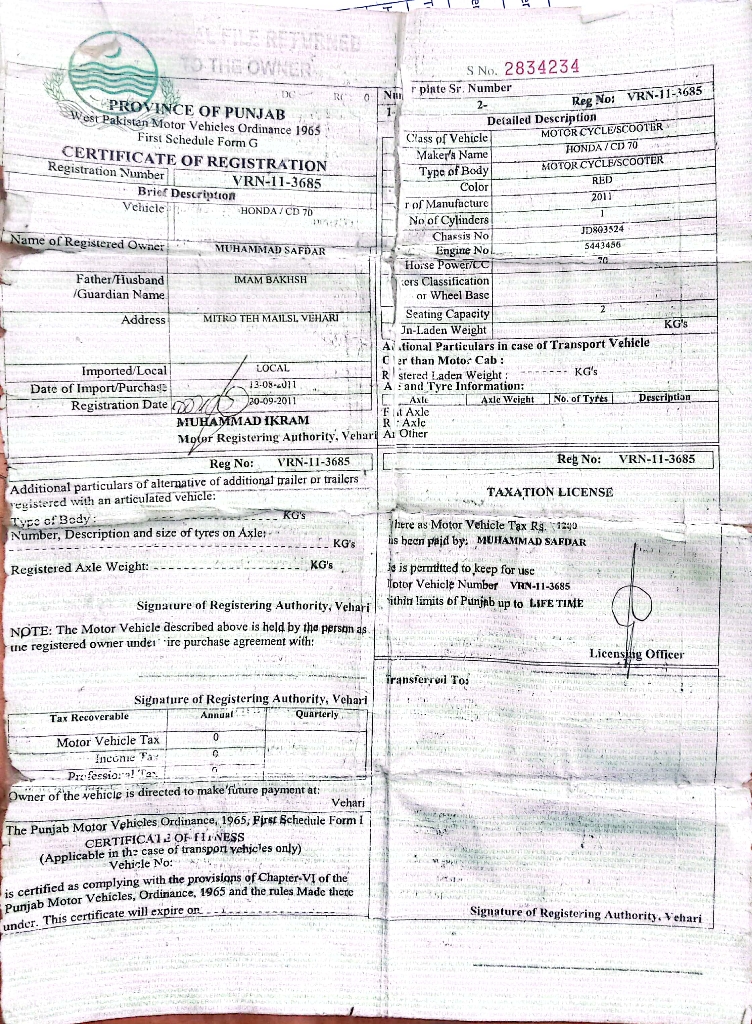 ORIGINAL FILE RETURNED
TO THE OWNER
PROVINCE OF PUNJAB
West Pakistan Motor Vehicles Ordinance 1965
First Schedule Form G
CERTIFICATE OF REGISTRATION
Registration Number VRN-11-3685
Brief Description
Vehicle HONDA / CD 70
Name of Registered Owner MUHAMMAD SAFDAR
Father/Husband IMAM BAKHSH
/Guardian Name
Address MITRO TEH MAILSI, VEHARI
Imported/Local LOCAL
Date of Import/Purchase 13-08-2011
Registration Date 20-09-2011
MUHAMMAD IKRAM
Motor Registering Authority, Vehari
Reg No: VRN-11-3685
Additional particulars of alternative of additional trailer or trailers
registered with an articulated vehicle:
Type of Body: KG's
Number, Description and size of tyres on Axle:
KG's
Registered Axle Weight: KG's
Signature of Registering Authority, Vehari
NOTE: The Motor Vehicle described above is held by the person as
the registered owner under ire purchase agreement with:
Signature of Registering Authority, Vehari
Tax Recoverable Annual Quarterly
Motor Vehicle Tax 0
Income Tax 0
Professional Tax 0
Owner of the vehicle is directed to make future payment at:
Vehari
The Punjab Motor Vehicles Ordinance, 1965, First Schedule Form I
CERTIFICATE OF FITNESS
(Applicable in the case of transport vehicles only)
Vehicle No:
is certified as complying with the provisions of Chapter-VI of the
Punjab Motor Vehicles, Ordinance, 1965 and the rules Made there
under. This certificate will expire on
S No. 2834234
Num r plate Sr. Number
1- 2- Reg No: VRN-11-3685
Detailed Description
Class of Vehicle MOTOR CYCLE/SCOOTER
Maker's Name HONDA / CD 70
Type of Body MOTOR CYCLE/SCOOTER
Color RED
r of Manufacture 2011
No of Cylinders 1
Chassis No JD803524
Engine No 5443486
Horse Power/CC 70
ers Classification
or Wheel Base
Seating Capacity 2
Un-Laden Weight KG's
Ad itional Particulars in case of Transport Vehicle
O er than Motor Cab :
R stered Laden Weight : KG's
A and Tyre Information:
Axle Axle Weight No. of Tyres Description
F nt Axle
R Axle
An Other
Reg No: VRN-11-3685
TAXATION LICENSE
here as Motor Vehicle Tax Rs. 1200
as been paid by: MUHAMMAD SAFDAR
is permitted to keep for use
Motor Vehicle Number VRN-11-3685
ithin limits of Punjab up to LIFE TIME
Licensing Officer
Transferred To:
Signature of Registering Authority, Vehari